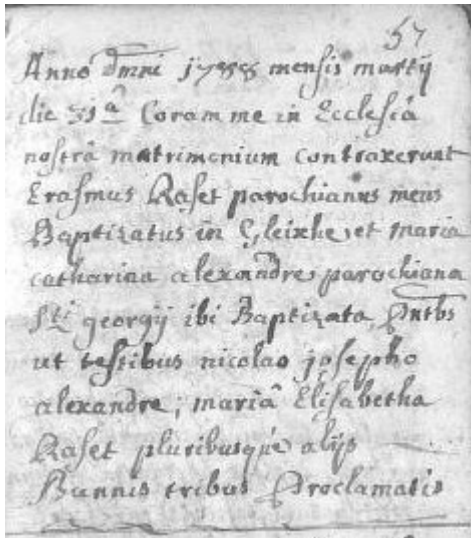 57
Anno dmni 1788 mensis martij
die 31â Coram me in Ecclesiâ
nostrâ matrimonium contraxerunt
Erasmus Raset parochianus meus
Baptizatus in Gleixhe, et maria
catharina alexandre parochiana
Sti georgij ibi Baptizata, Pntbs
ut testibus nicolao josepho
alexandre; mariâ Elisabetha
Raset pluribusque alijs
Bannis tribus Proclamatis